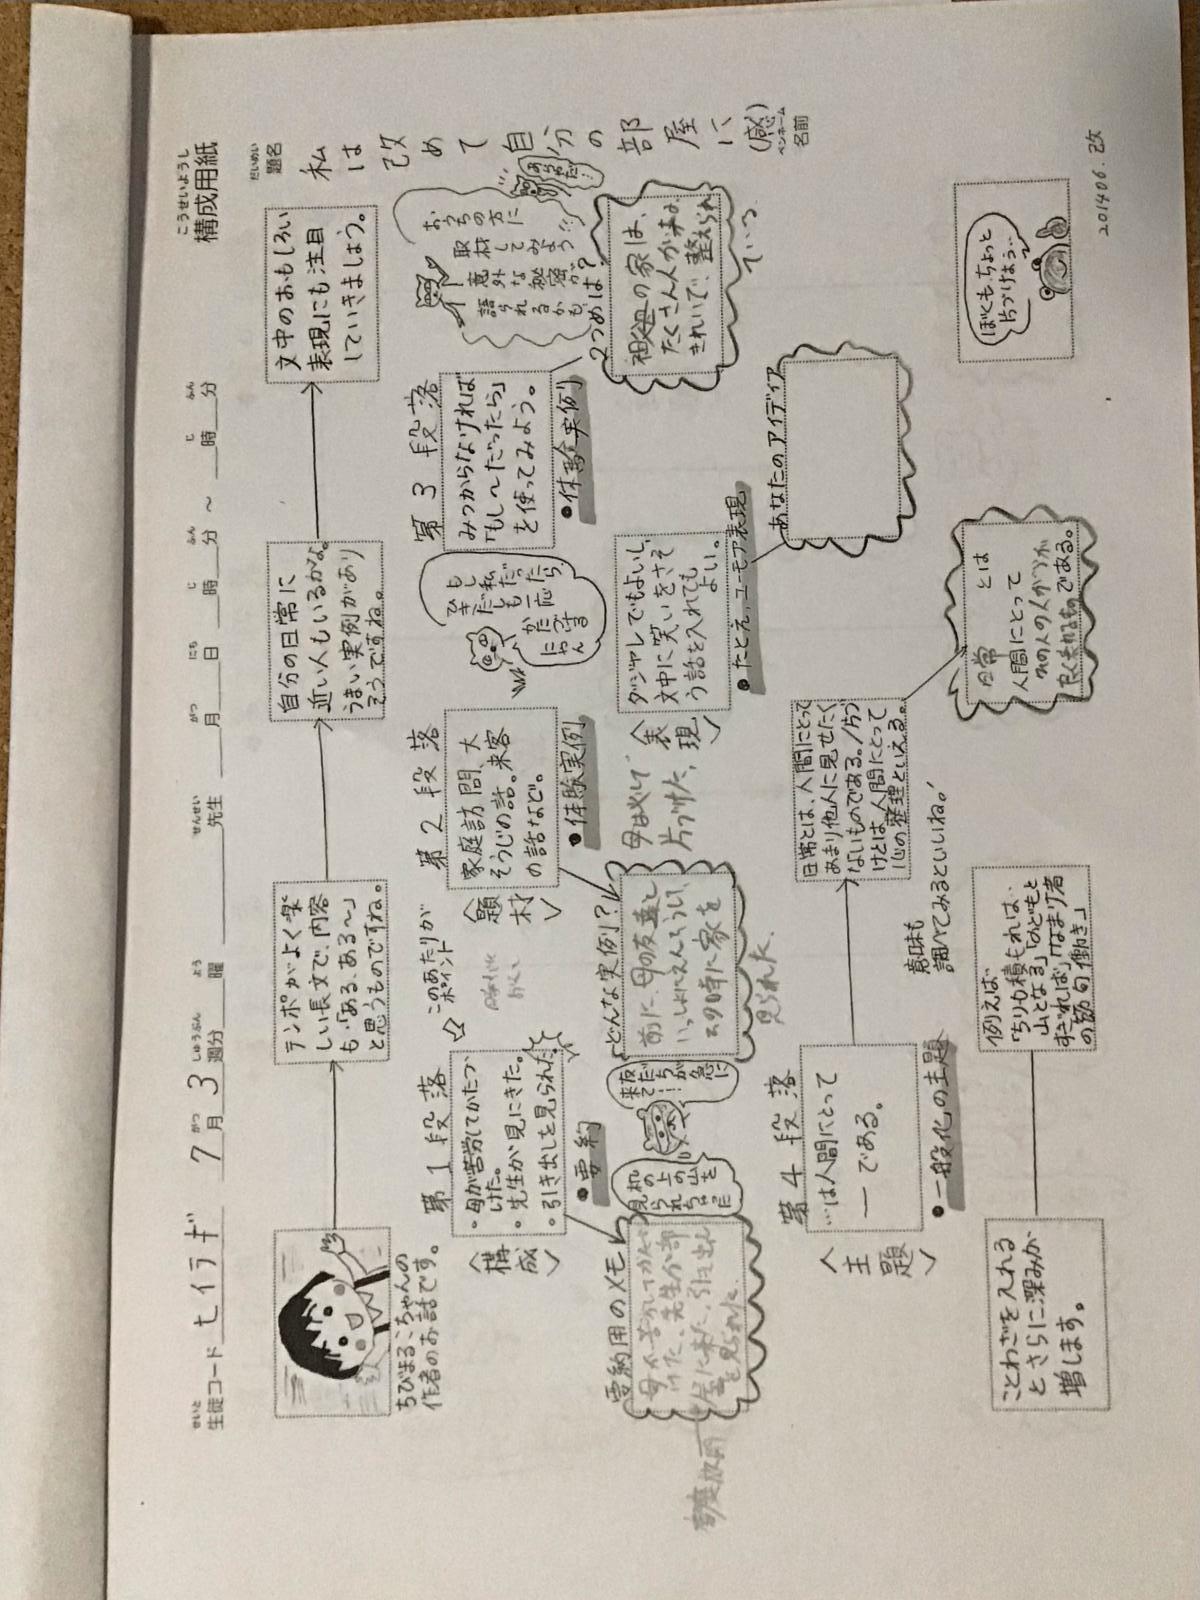 こうせいようし
構成用紙
せいと
生徒コード ヒイラギ
7月3週分
がつ
しゅうぶん
よう
曜
せんせい
先生
がつ
月
にち
日
じ
時
ふん
分
～
じ
時
ふん
分
だいめい
題名
私は改めて自分の部屋に(感)
ペンネーム
名前
ちびまるこちゃんの
作者のお話です。
テンポがよく楽
しい長文で、内容
も、「ある、ある～」
と思うものですね。
自分の日常に
近い人もいるかな。
うまい実例があり
そうですね。
文中のおもしろい
表現にも注目
していきましょう。
第1段落
〈構成〉
・母が苦労してかたづ
けた。
・先生が見にきた。
・引き出しを見られた
●要約
このあたりが
ポイント
要約用のメモ
机の上の山を
見られちゃ
だ
友だちが急に
来て…!
第2段落
〈題材〉
家庭訪問、大
そうじの話。来客
の話など。
●体験実例
どんな実例?
前に、母の友達と
いっしょに
その時に家を
見られた。
片づけた,
もし
私だったら
一応
かたづける
にゃん
第3段落
みつからなければ
「もし～だったら」
を使ってみよう。
●体験実例
おうちの方に
取材してみよう!!
意外な秘密が
語られるかも
2つめは?
祖父母の家は、
たくさん人が来る
きれいで、整えられ
ている
〈表現〉
ダジャレでもよいし、
文中に笑いをさそ
う話を入れても
よい。
●たとえ、ユーモア表現
あなたのアイディア
第4段落
〈主題〉
…は人間にとって
―である。
●一般化の主題
日常とは、人間にとって
あまり他人に見せたく
ないものである。/片づ
けとは人間にとって
心の整理といえる。
日常 とは
人間にとって
その人の人がらが
良く表れるものである。
ことわざを入れる
とさらに深みが
増します。
例えば
「ちりも積もれば…
山となる」「のどもと
すぎれば」「なまけ者
の節句働き」
意味も
調べてみるといいね。
ぼくも、ちょっと
片づけよう…
201406.改